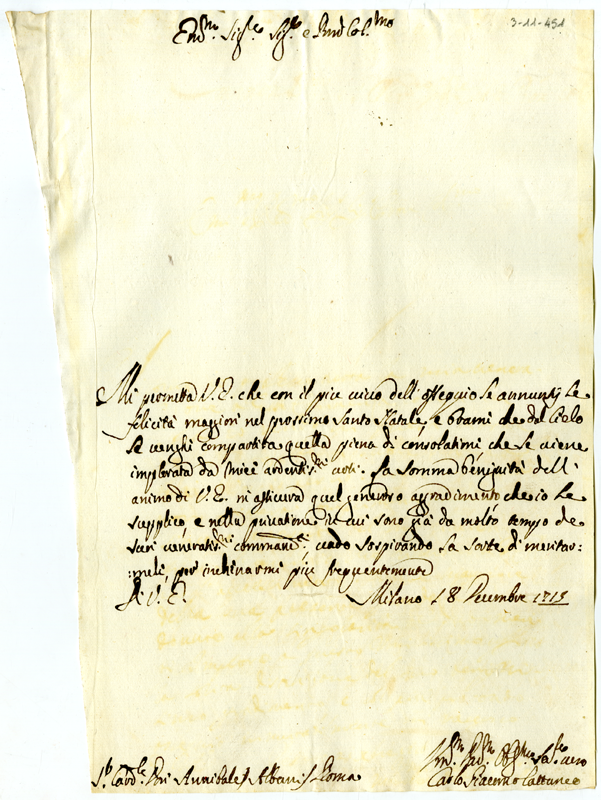 3-11-451
Em.mo Sig.re Sig.re e Pron Col.mo
Mi prometta V. E. che con il piu vivo dell'ossequio Le annuntij Le
felicità maggiori nel prossimo Santo Natale, e brami che dal Cielo
Le venghi compartita quella piena di consolationi che Le viene
implorata da miei ardentis.mi voti. La somma benignità dell'
animo di V. E. m'assicura quel generoso agradimento che io Le
supplico, e nella privatione in cui sono già da molto tempo de
suoi veneratis.mi commandi.ti, vado sospirando La sorte di meritar:
:meli, per inchinarmi più frequentemente
Di V. E. Milano 18 Decembre 1715
S.r Card.le Don Annibale Albani / Roma
Carlo Cattaneo